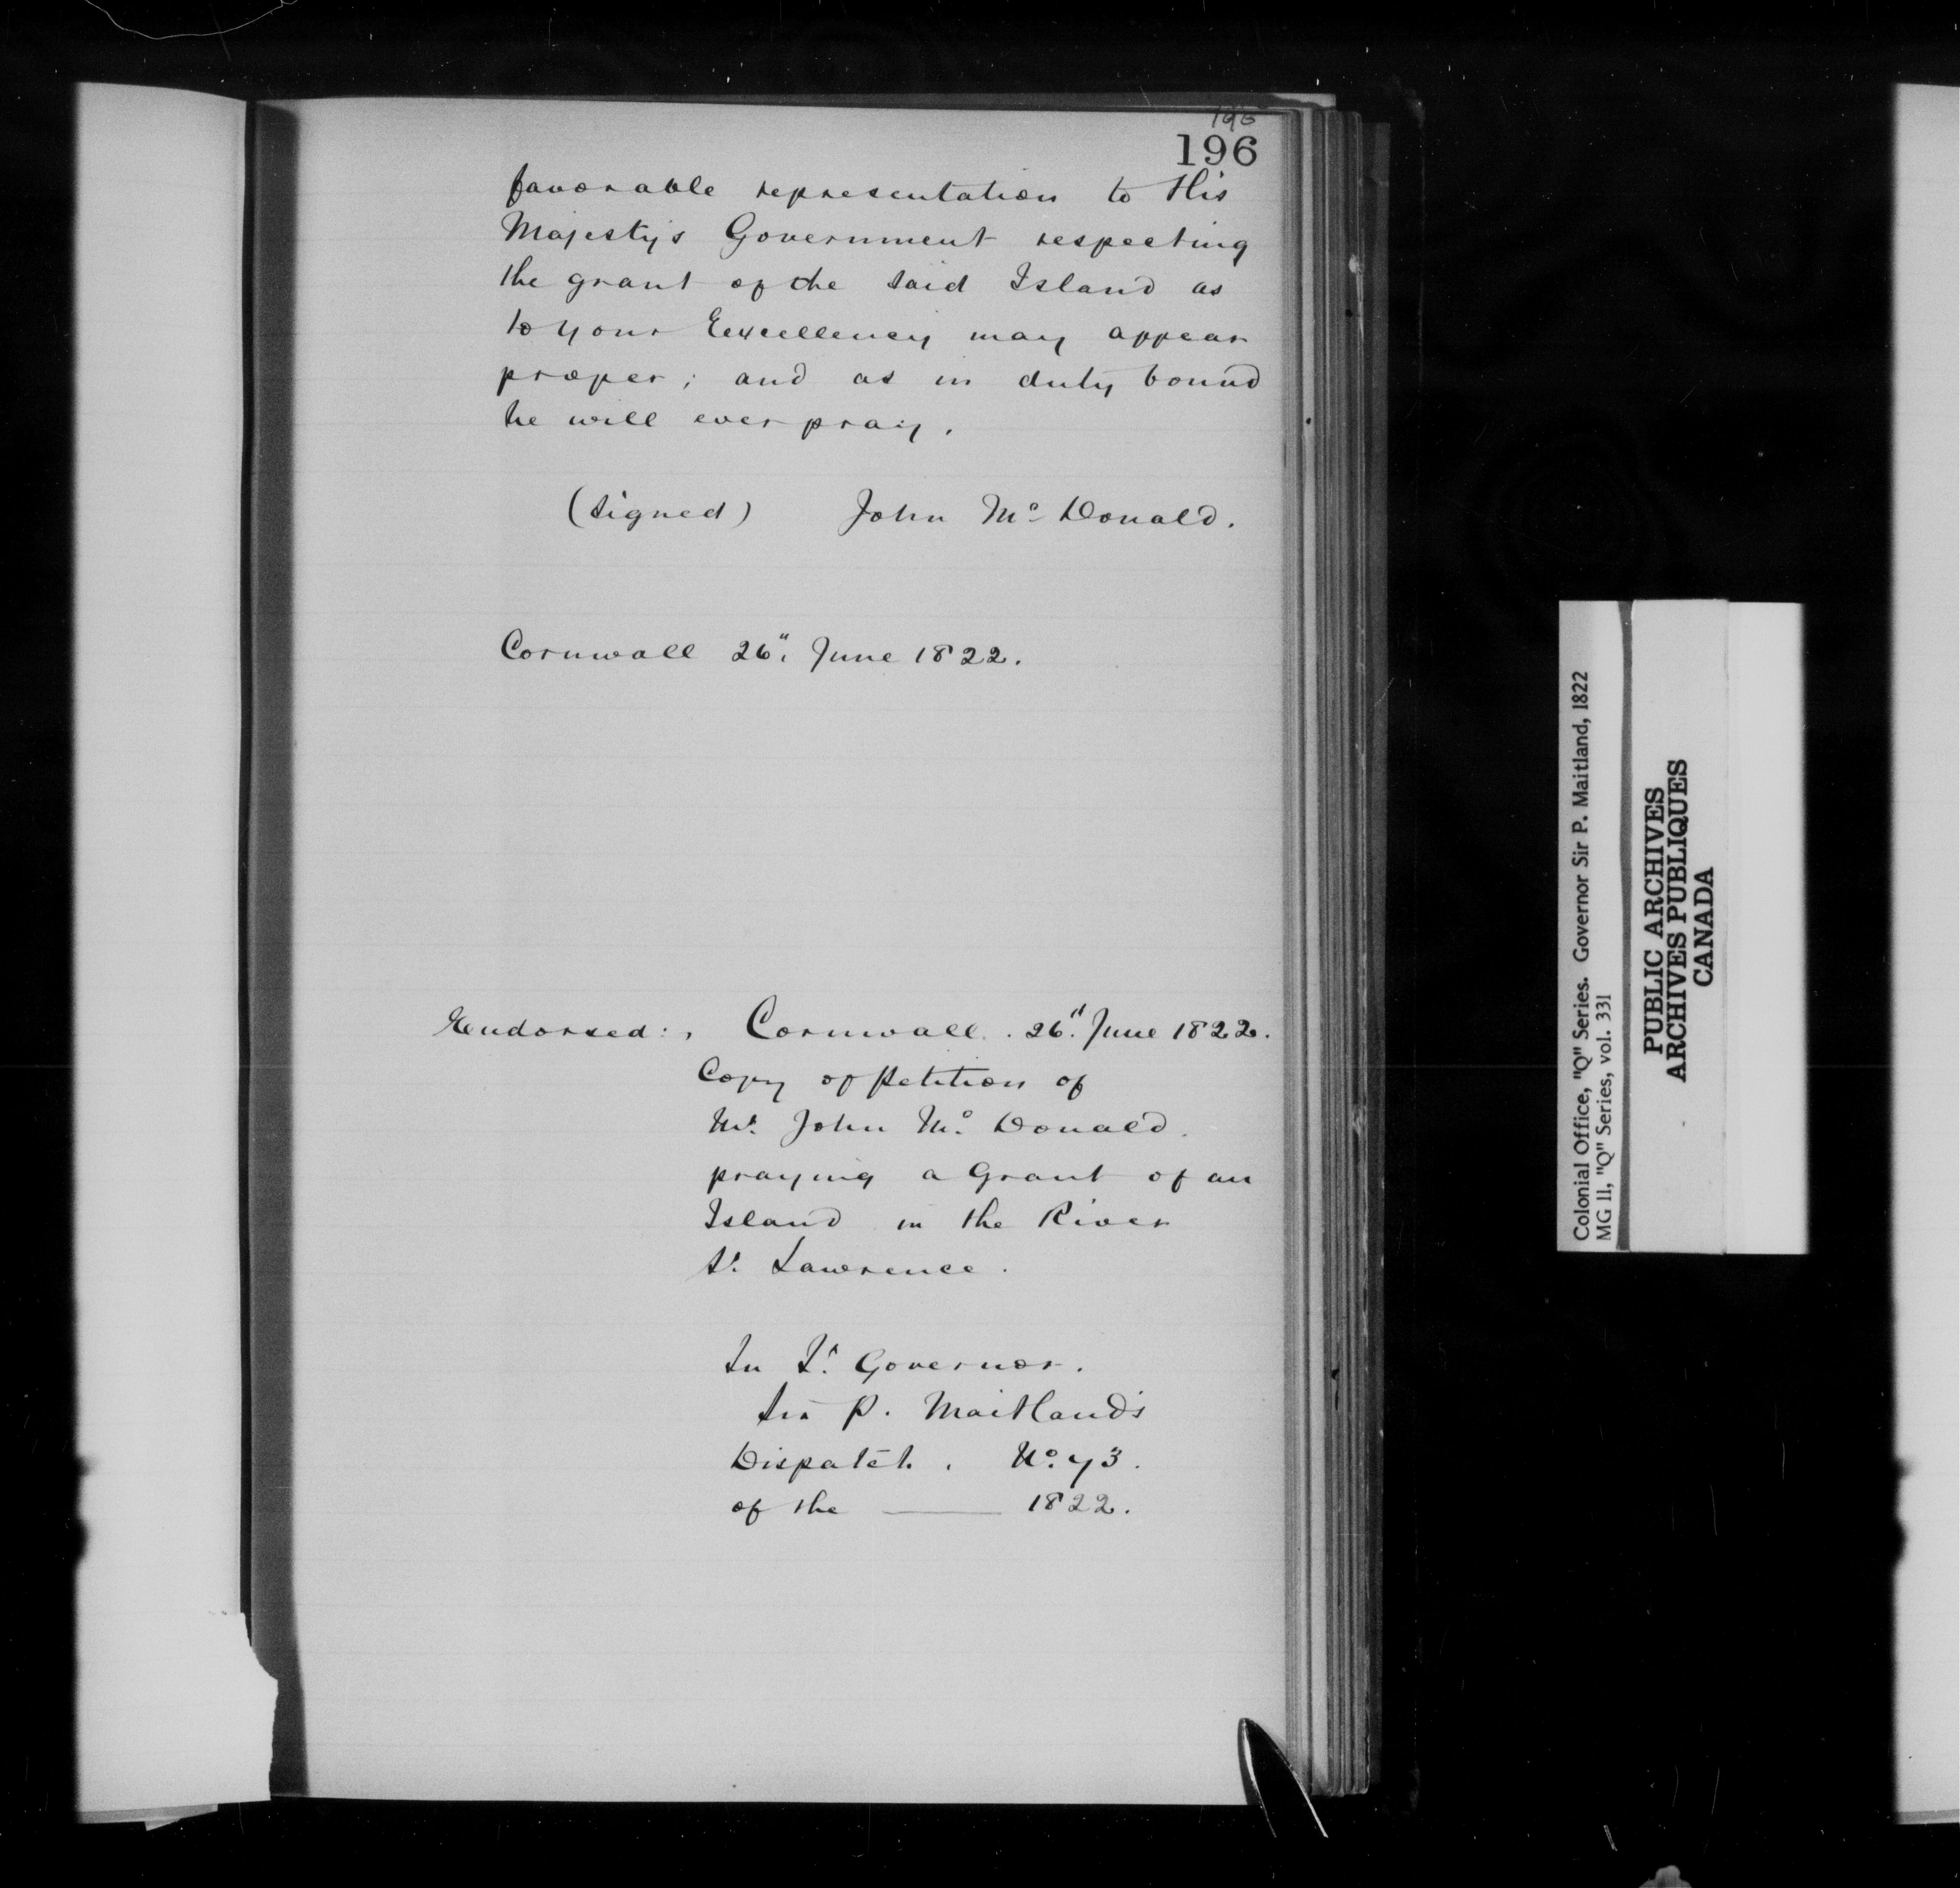 196
196
favorable representation to His
Majesty's Government respecting
the grant of the said Island as
to your Excellency may appear
proper; and as in duty bound
he will ever pray.
(Signed) John Mc Donald.
Cornwall 26" June 1822.
Endorsed: Cornwall. 26" June 1822.
Copy of Petition of
Mr. John Mc Donald.
praying a Grant of an
Island in the River
St. Lawrence.
In Lt. Governor.
Sir P. Maitland's
Dispatch. No. 73.
of the —— 1822.
Colonial Office, "Q" Series. Governor Sir P. Maitland, 1822
MG 11, "Q" Series, vol. 331
PUBLIC ARCHIVES
ARCHIVES PUBLIQUES
CANADA